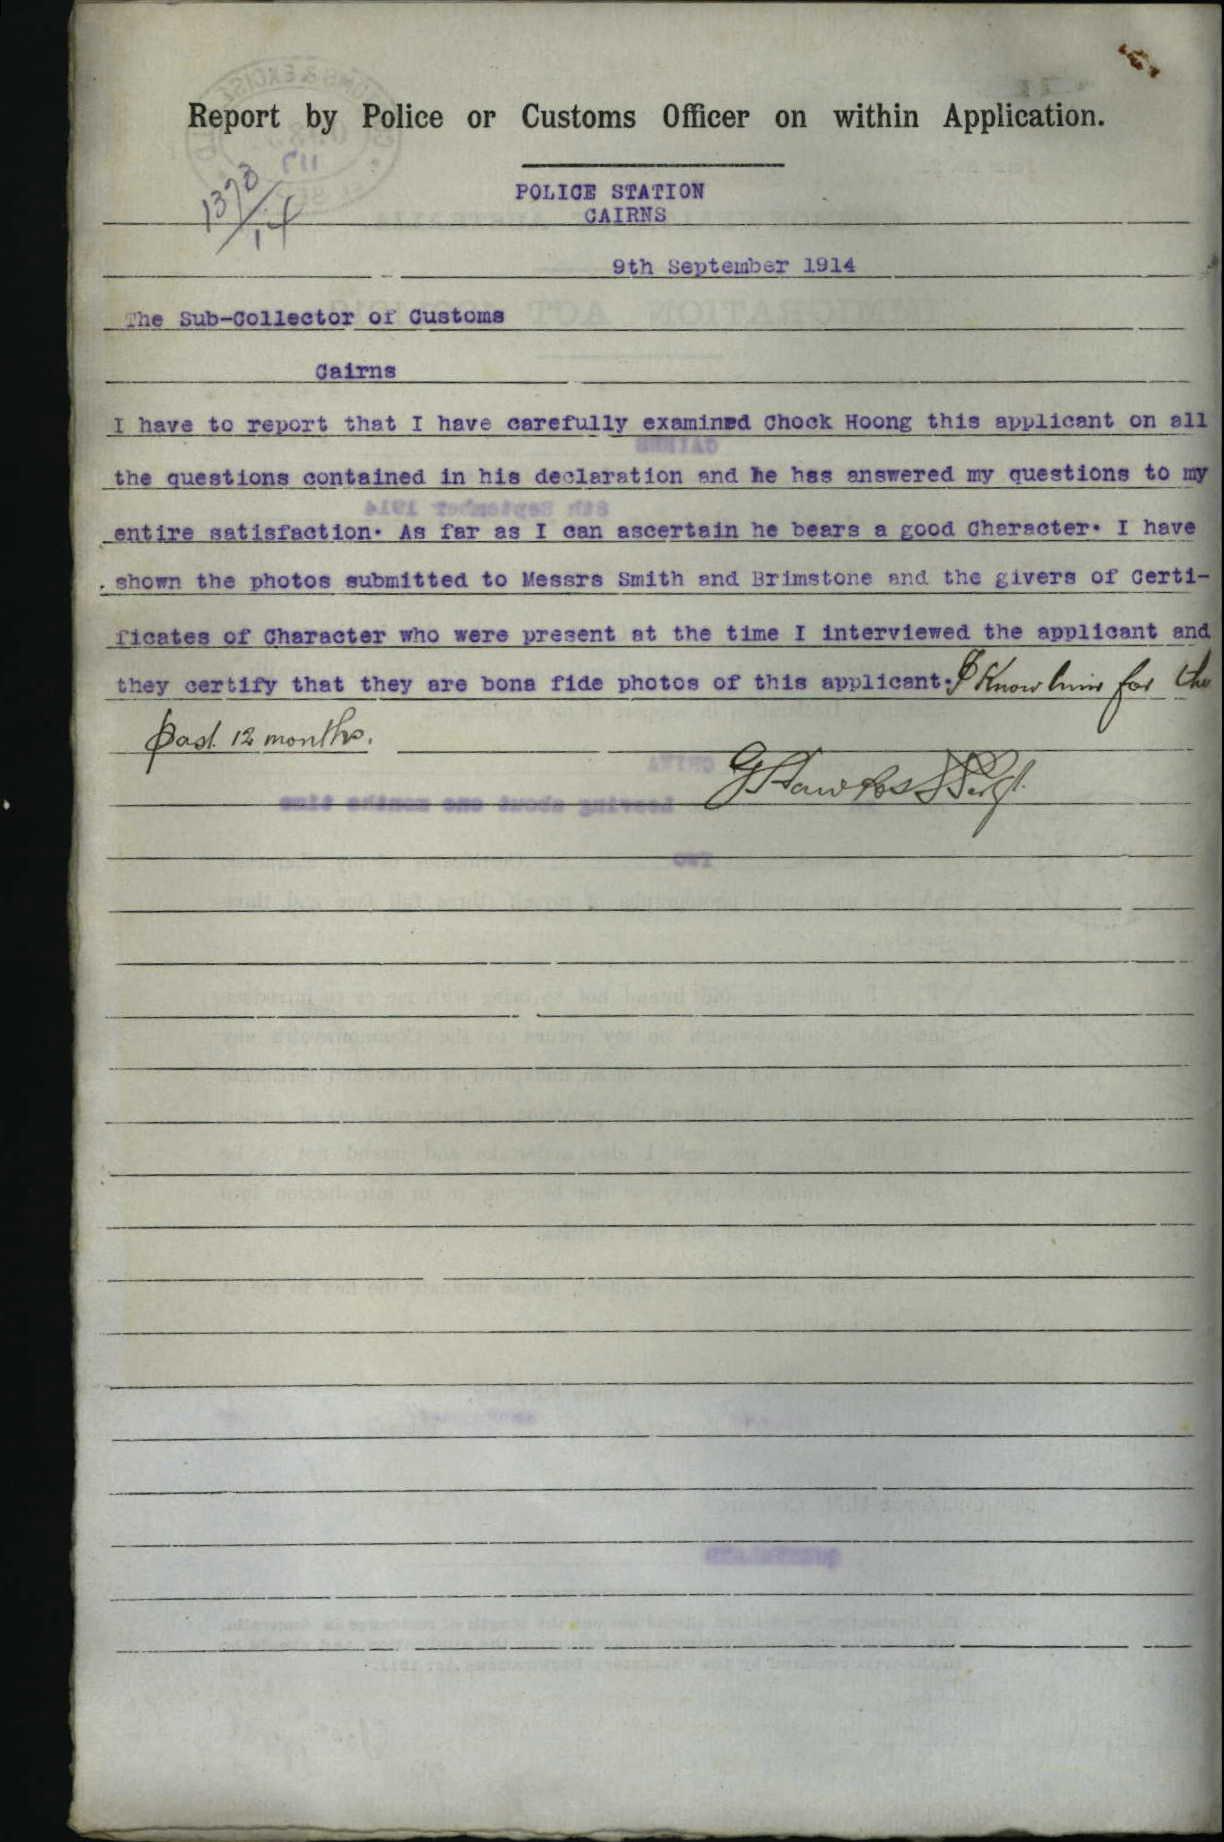 Report by Police or Customs Officer on within Application.
1373/14
POLICE STATION
CAIRNS
9th September 1914
The Sub-Collector of Customs
Cairns
I have to report that I have carefully examined Chock Hoong this applicant on all
the questions contained in his declaration and he has answered my questions to my
entire satisfaction. As far as I can ascertain he bears a good Character. I have
shown the photos submitted to Messrs Smith and Brimstone and the givers of Certi-
ficates of Character who were present at the time I interviewed the applicant and
they certify that they are bona fide photos of this applicant. I know him for the
past 12 months.